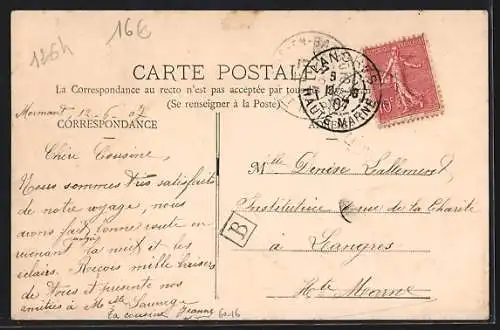 126h
16€
CARTE POSTALE
La Correspondance au recto n'est pas acceptée par tous
(Se renseigner à la Poste)
LANGRES
5
07
HAUTE-MARNE
10
Mormant, 12-6-07
CORRESPONDANCE
Chère Cousine,
Nous sommes très satisfaits
de notre voyage, nous
avons fait bonne route en
revenant malgré la nuit et les
éclairs. Reçois mille baisers
de tous et présente nos
amitiés à Mme
ta cousine Jeanne
60-16
Mlle Denise Lallement
Institutrice rue de la Charité
à Langres
Hte Marne
B